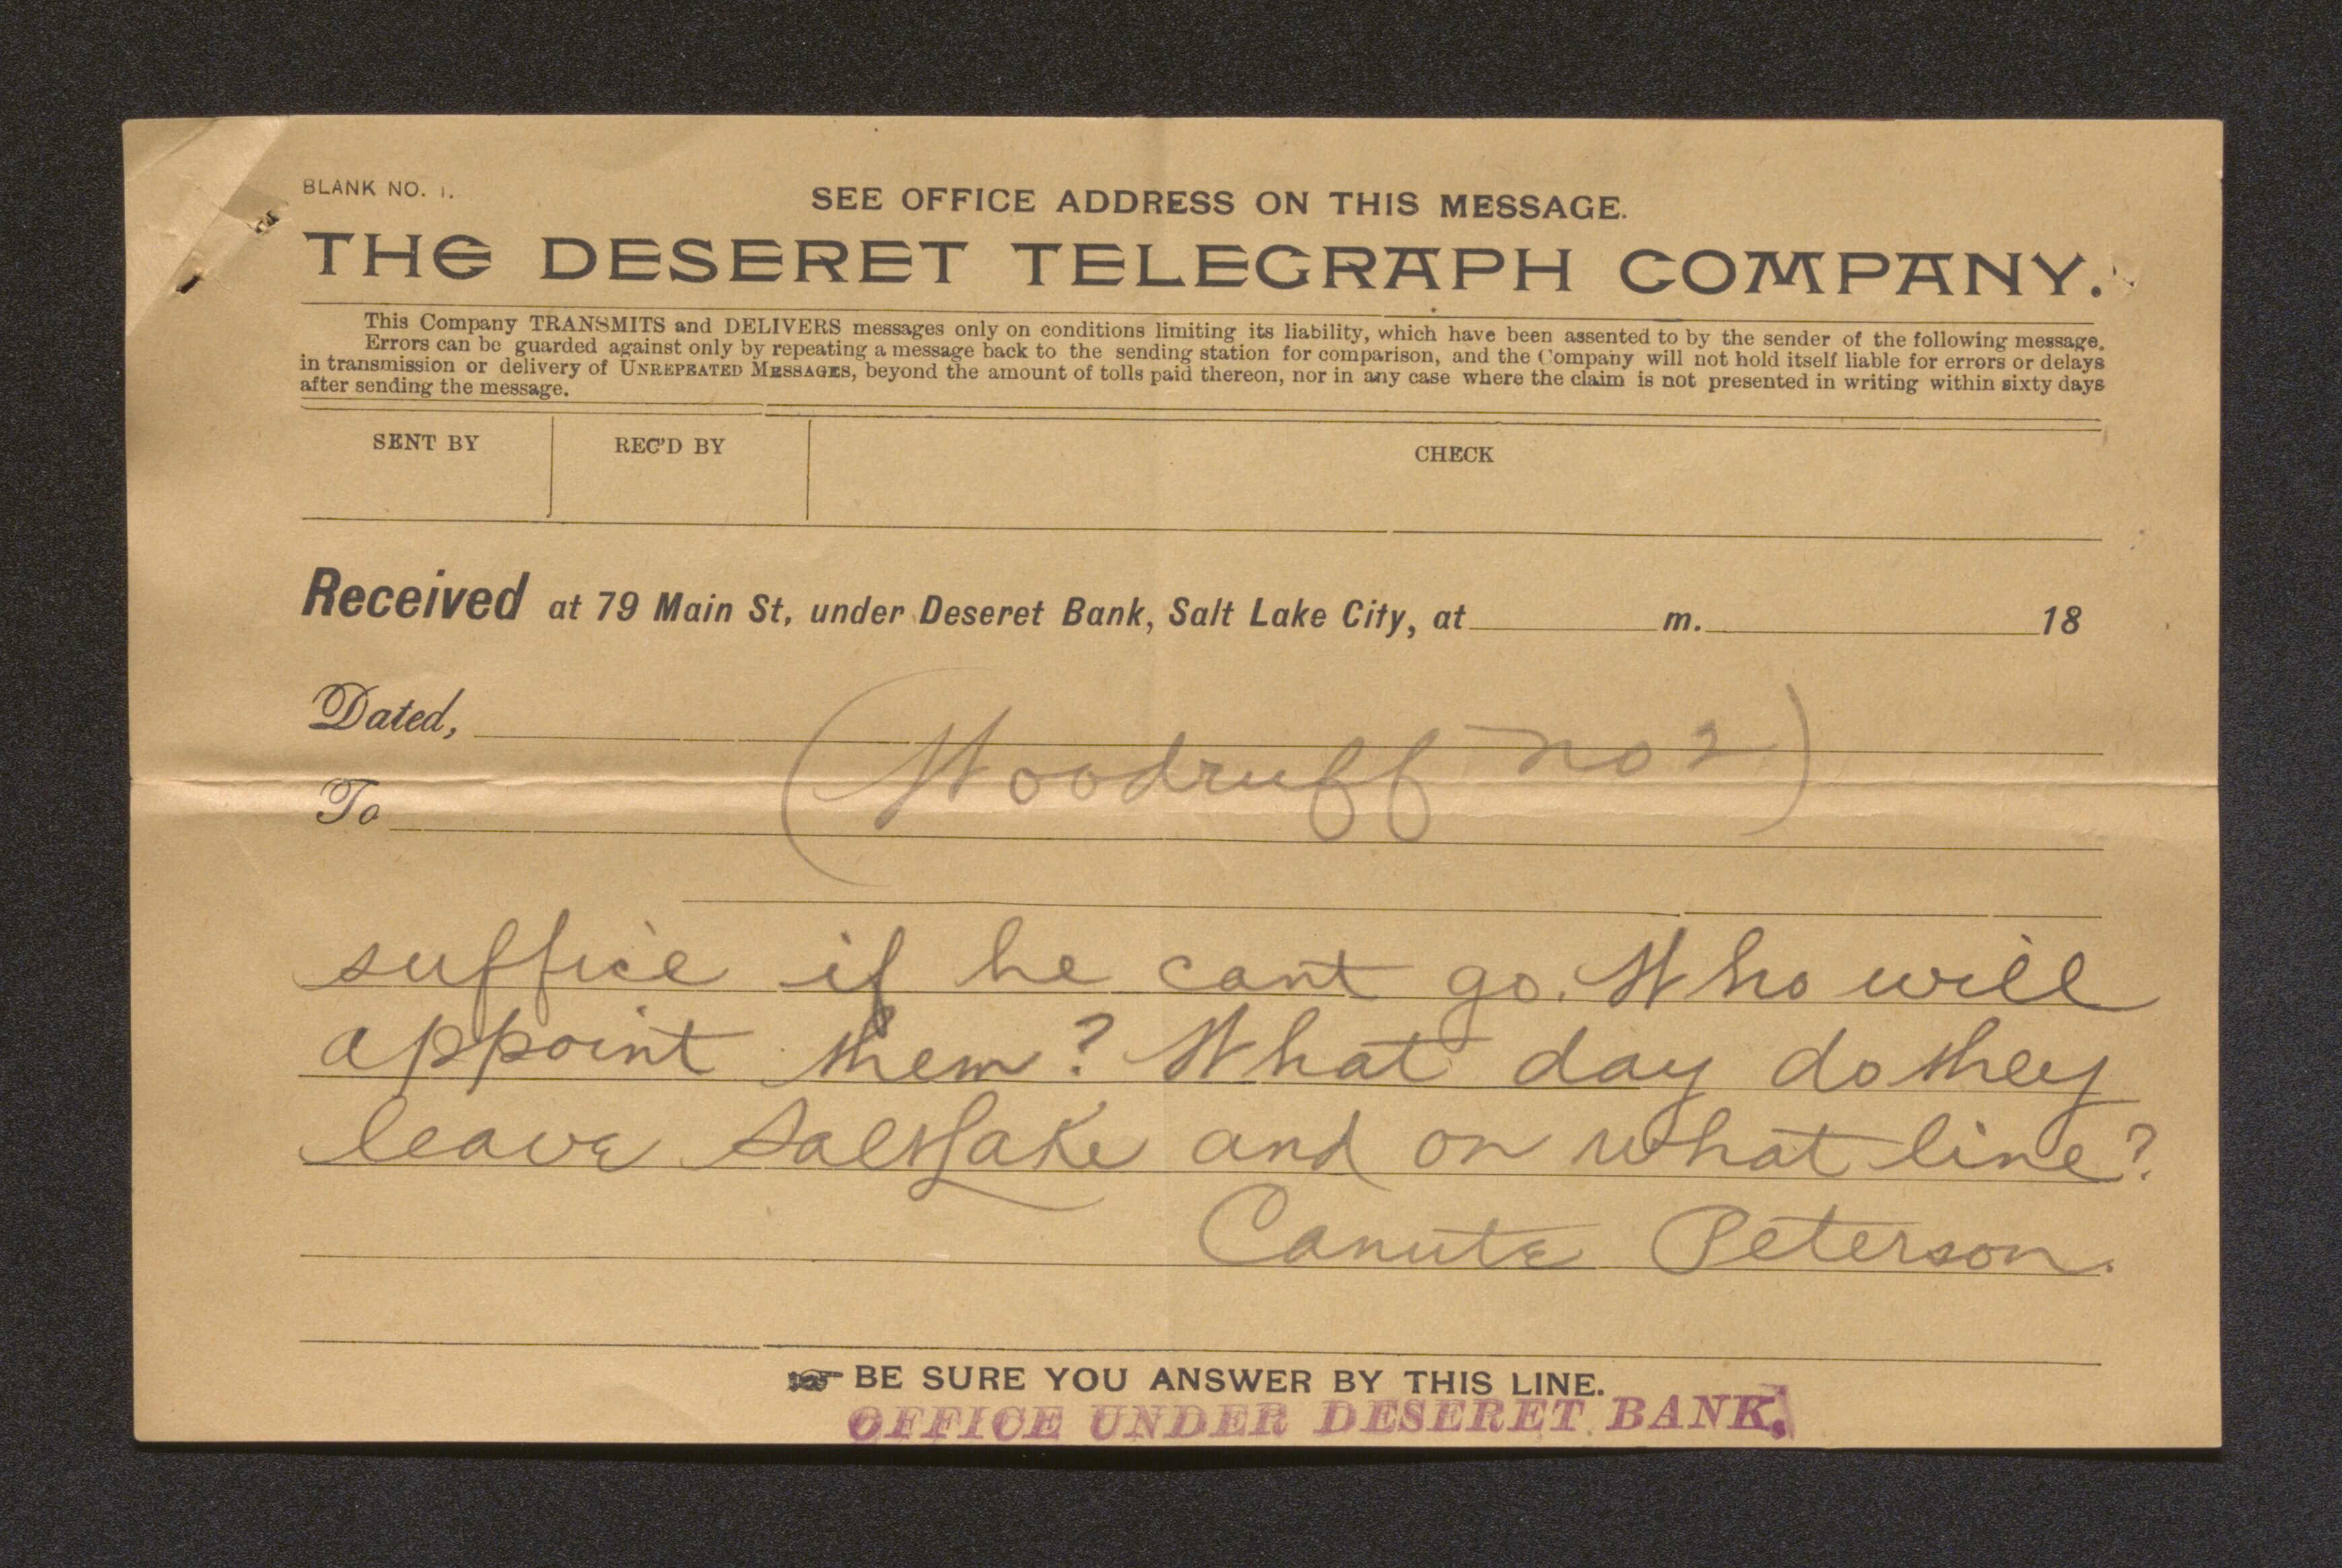 BLANK NO. 1.
SEE OFFICE ADDRESS ON THIS MESSAGE.
THE DESERET TELEGRAPH COMPANY.
This Company TRANSMITS and DELIVERS messages only on conditions limiting its liability, which have been assented to by the sender of the following message.
Errors can be guarded against only by repeating a message back to the sending station for comparison, and the Company will not hold itself liable for errors or delays
in transmission or delivery of UNREPEATED MESSAGES, beyond the amount of tolls paid thereon, nor in any case where the claim is not presented in writing within sixty days
after sending the message.
SENT BY REC'D BY CHECK
Received at 79 Main St, under Deseret Bank, Salt Lake City, at m. 18
Dated,
(Woodruff no 2)
To
suffice if he cant go. Who will
appoint them? What day do they
leave Salt Lake and on what line?
Canute Peterson.
BE SURE YOU ANSWER BY THIS LINE.
OFFICE UNDER DESERET BANK.